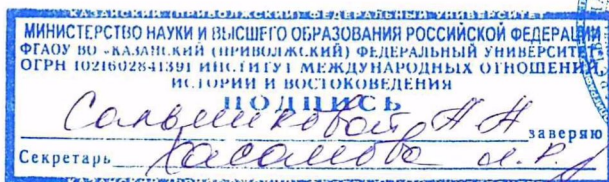 КАЗАНСКИЙ (ПРИВОЛЖСКИЙ) ФЕДЕРАЛЬНЫЙ УНИВЕРСИТЕТ
МИНИСТЕРСТВО НАУКИ И ВЫСШЕГО ОБРАЗОВАНИЯ РОССИЙСКОЙ ФЕДЕРАЦИИ
ФГАОУ ВО «КАЗАНСКИЙ (ПРИВОЛЖСКИЙ) ФЕДЕРАЛЬНЫЙ УНИВЕРСИТЕТ
ОГРН 1021602841391 ИНСТИТУТ МЕЖДУНАРОДНЫХ ОТНОШЕНИЙ,
ИСТОРИИ И ВОСТОКОВЕДЕНИЯ
ПОДПИСЬ
Сальниковой А А заверяю
Секретарь Хасанова